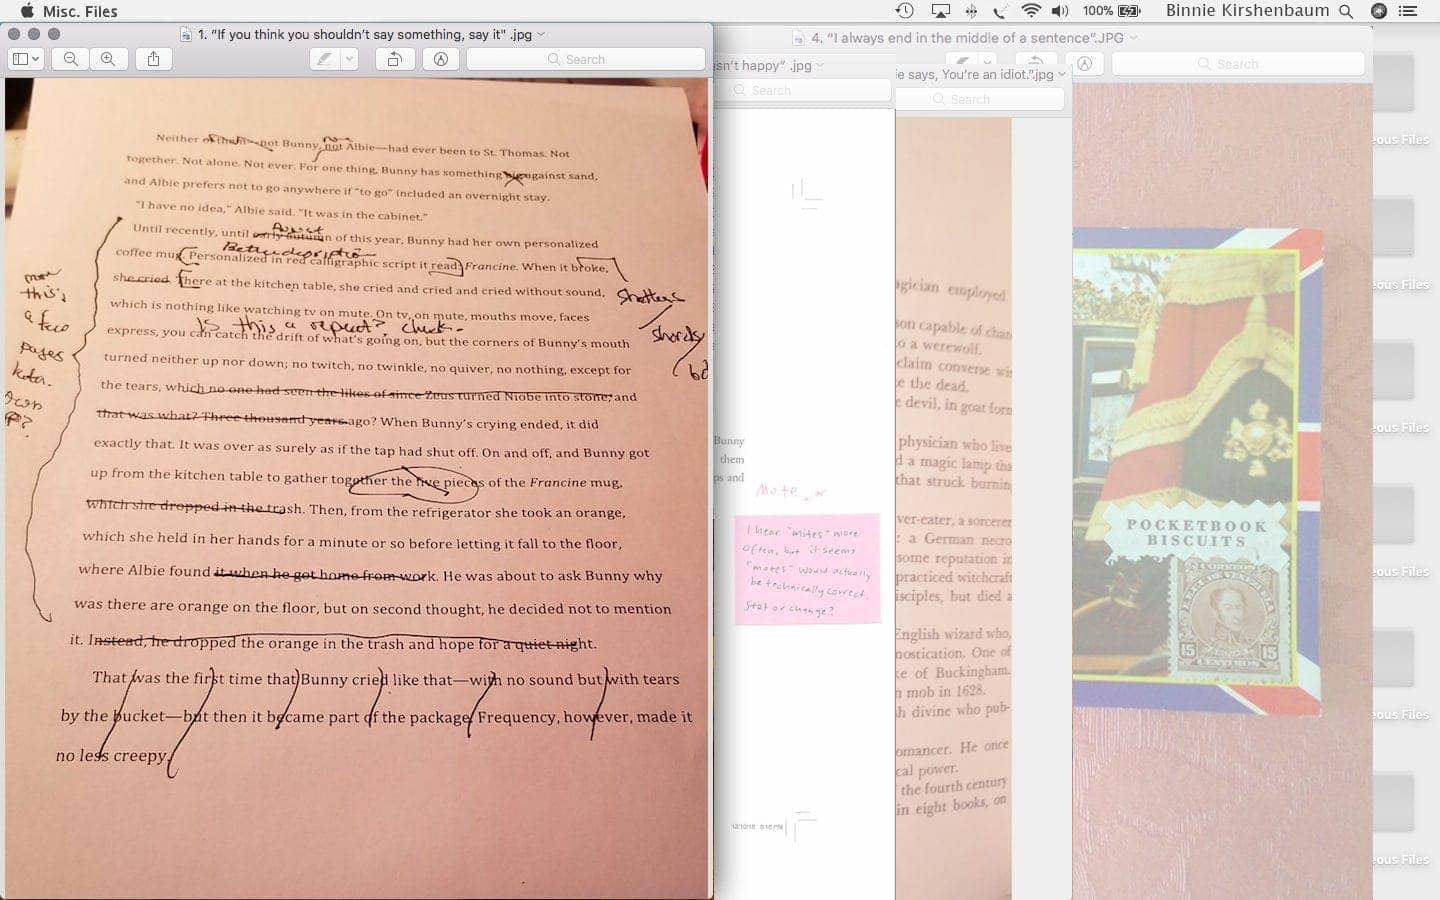 Misc. Files
100%
Binnie Kirshenbaum
1. “If you think you shouldn’t say something, say it” .jpg
Search
Neither of them—not Bunny, not Albie—had ever been to St. Thomas. Not
nor
together. Not alone. Not ever. For one thing, Bunny has something against sand,
and Albie prefers not to go anywhere if “to go” included an overnight stay.
“I have no idea,” Albie said. “It was in the cabinet.”
August
Until recently, until early autumn of this year, Bunny had her own personalized
Better description
coffee mug. Personalized in red calligraphic script it read: Francine. When it broke,
she cried. There at the kitchen table, she cried and cried and cried without sound,
which is nothing like watching tv on mute. On tv, on mute, mouths move, faces
Is this a repeat? check.
express, you can catch the drift of what’s going on, but the corners of Bunny’s mouth
turned neither up nor down; no twitch, no twinkle, no quiver, no nothing, except for
the tears, which no one had seen the likes of since Zeus turned Niobe into stone, and
that was what? Three thousand years ago? When Bunny’s crying ended, it did
exactly that. It was over as surely as if the tap had shut off. On and off, and Bunny got
up from the kitchen table to gather together the five pieces of the Francine mug,
which she dropped in the trash. Then, from the refrigerator she took an orange,
which she held in her hands for a minute or so before letting it fall to the floor,
where Albie found it when he got home from work. He was about to ask Bunny why
was there are orange on the floor, but on second thought, he decided not to mention
it. Instead, he dropped the orange in the trash and hope for a quiet night.
That was the first time that Bunny cried like that—with no sound but with tears
by the bucket—but then it became part of the package. Frequency, however, made it
no less creepy.
move
this
a few
pages
later.
shatters
shards
sn’t happy” .jpg
Search
Bunny
them
ps and
Mote
I hear “mites” more
often, but it seems
“motes” would actually
be technically correct.
Stet or change?
ie says, You’re an idiot.”.jpg
Search
agician employed
son capable of chan
o a werewolf.
claim converse wi
e the dead.
e devil, in goat form
physician who live
d a magic lamp tha
that struck burning
ver-eater, a sorcerer
: a German necro
some reputation in
practiced witchcraft
isciples, but died a
English wizard who,
nostication. One of
ke of Buckingham.
n mob in 1628.
sh divine who pub-
omancer. He once
cal power.
the fourth century
in eight books, on
4. “I always end in the middle of a sentence”.JPG
Search
POCKETBOOK
BISCUITS
CORREOS
15
15
CENTIMOS
eous Files
eous Files
eous Files
eous Files
eous Files
eous Files